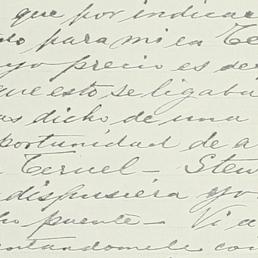 que por indicac
do para mi ca Te
yo precio es de
que esto se ligaba
as dicho de una
portunidad de a
Teruel - Stew
dispusiera yo
ho puente - Vi a
ntandomele con